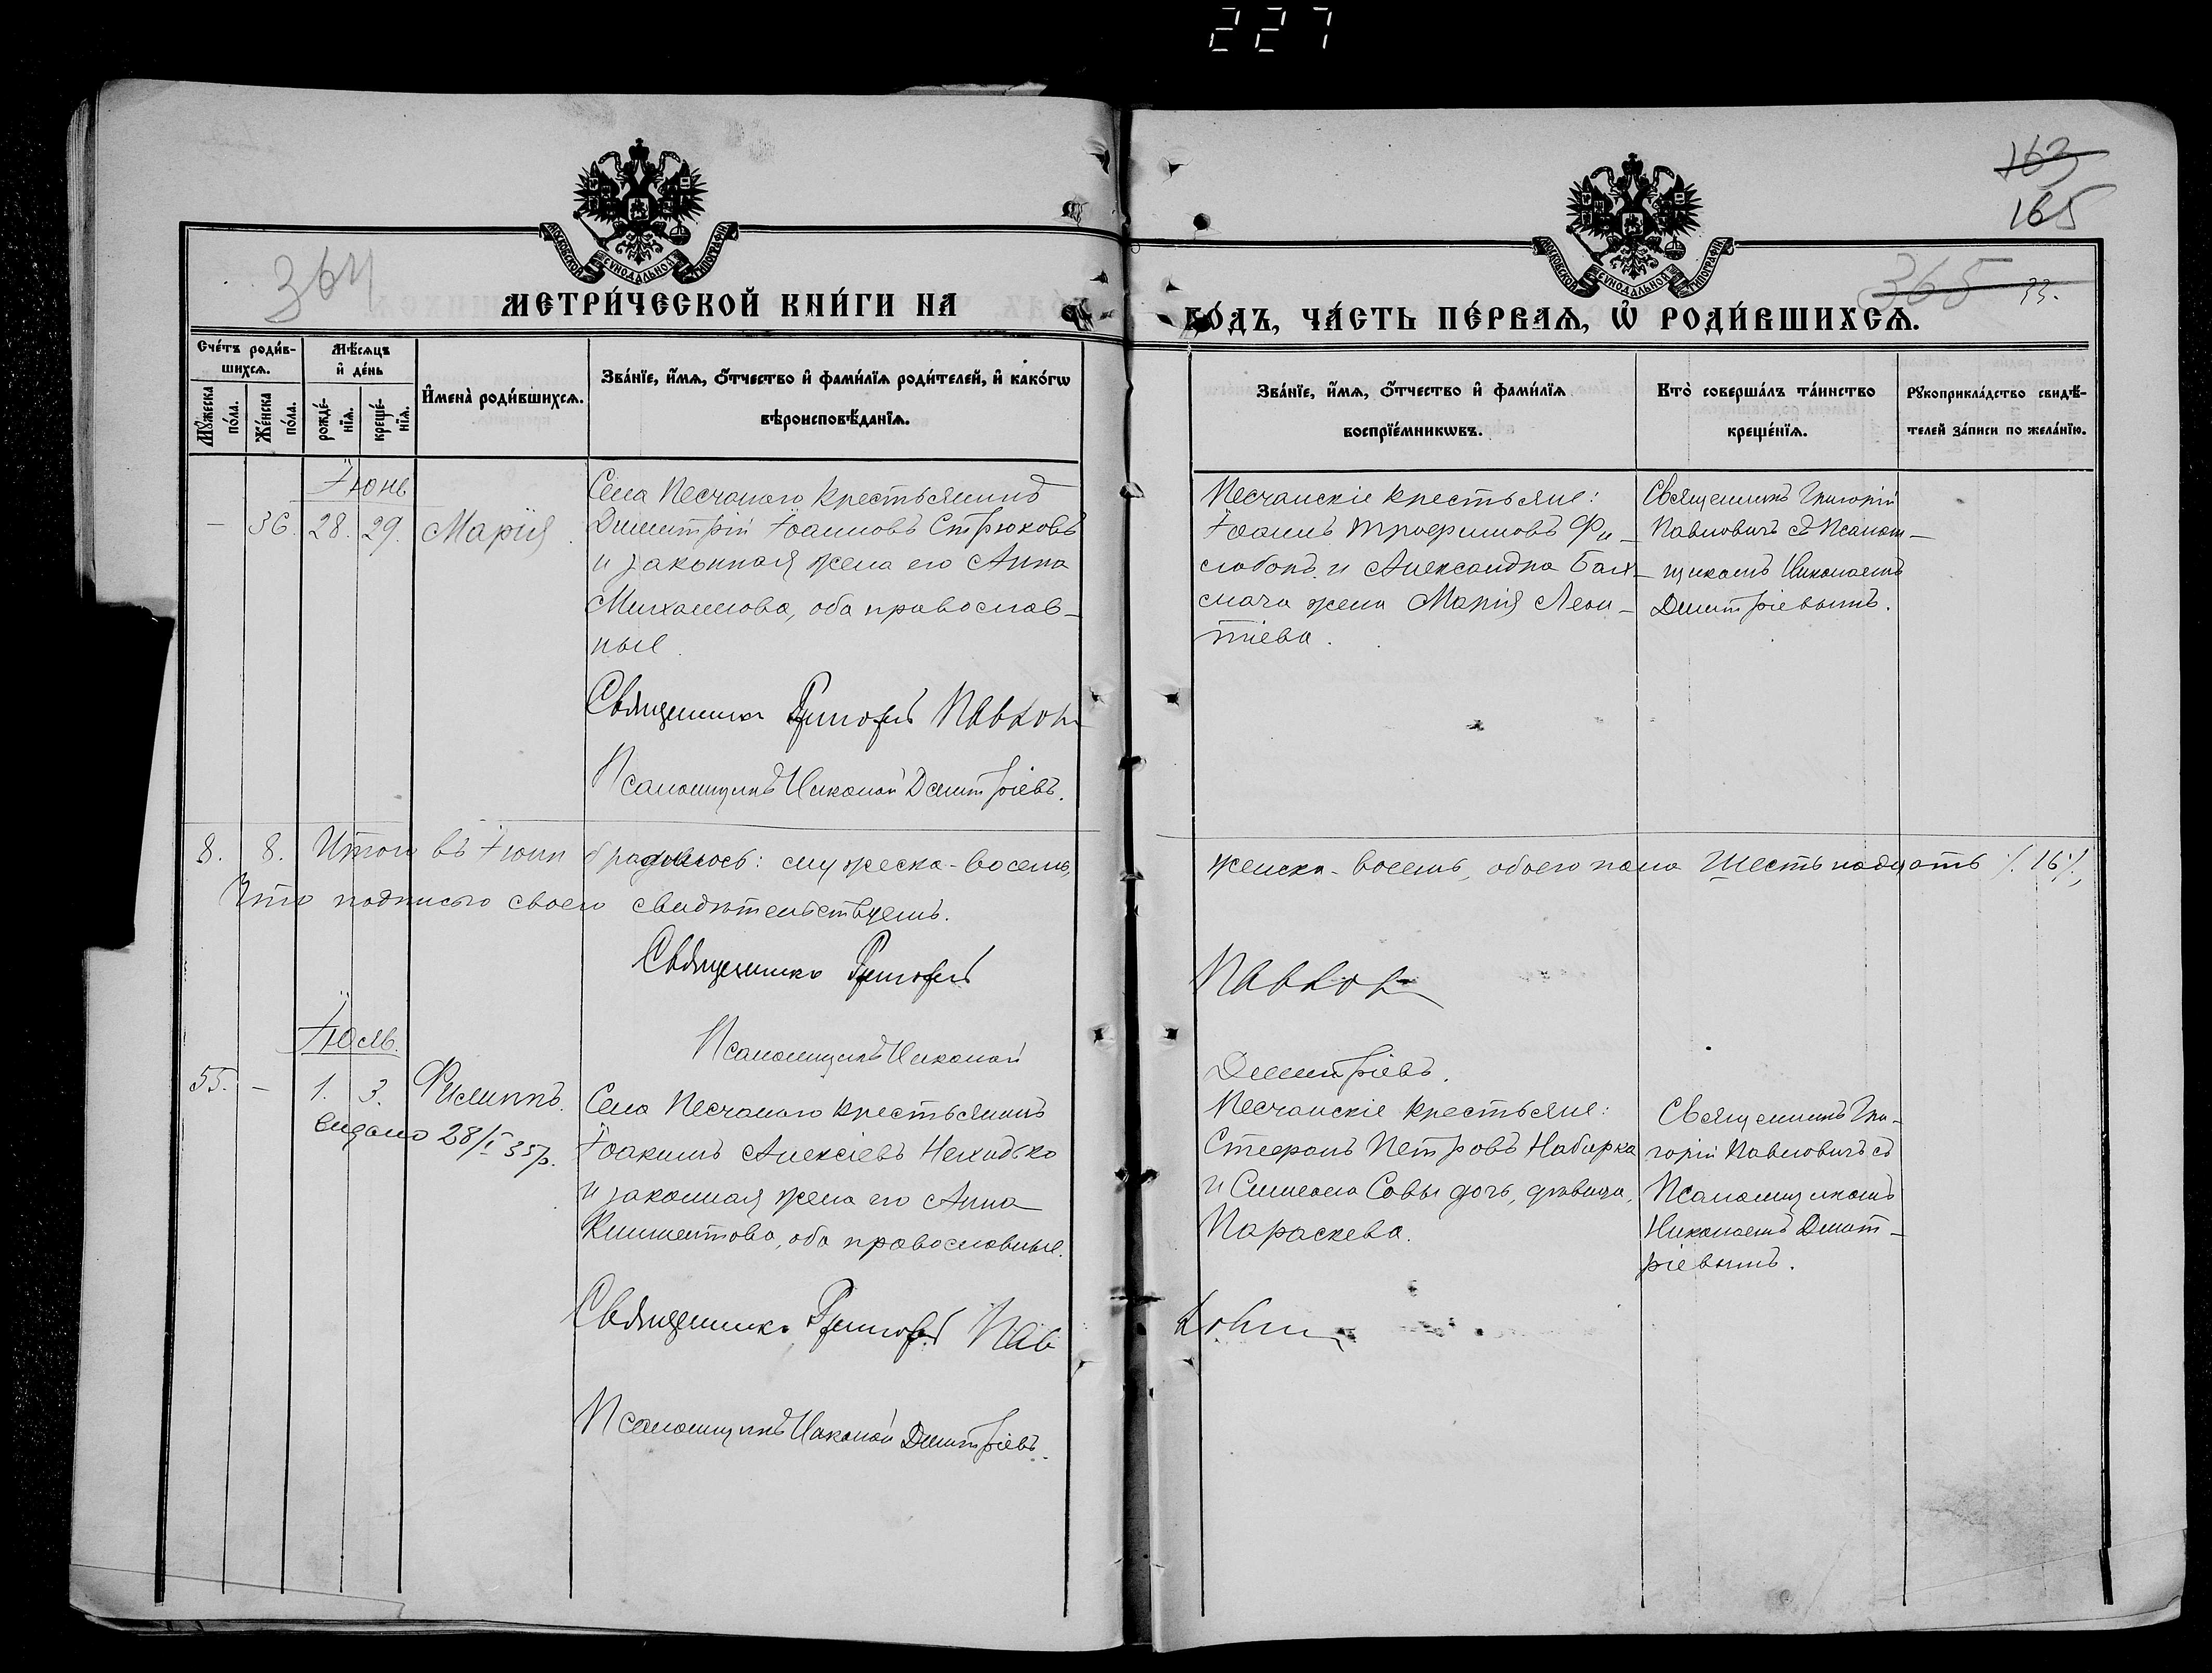 227
163
165
364
365
33.
МОСКОВСКОЙ СѴНОДАЛЬНОЙ ТИПОГРАФІИ
МОСКОВСКОЙ СѴНОДАЛЬНОЙ ТИПОГРАФІИ
МЕТРИ́ЧЕСКОЙ КНИ́ГИ НА
ГО́ДЪ, ЧА́СТЬ ПЕ́РВАѦ, Ѡ҆ РОДИ́ВШИХСѦ.
Сче́тъ роди́в-
шихсѧ.
Мꙋ́жеска
по́ла.
Же́нска
по́ла.
Мѣ́сѧцъ
и҆ де́нь
рожде́-
нїѧ.
креще́-
нїѧ.
И҆мена̀ роди́вшихсѧ.
Зва́нїе, и҆́мѧ, ѻ҆́тчество и҆ фами́лїѧ роди́телей, и҆ како́гѡ
вѣроисповѣ́данїѧ.
Зва́нїе, и҆́мѧ, ѻ҆́тчество и҆ фами́лїѧ
воспрїе́мникѡвъ.
Кто̀ соверша́лъ та́инство
креще́нїѧ.
Рꙋкоприкла́дство свидѣ́-
телей за́писи по жела́нїю.
Іюнь
— 36. 28. 29. Марія
Села Песчаного крестьянинъ
Димитрій Іоанновъ Стрюковъ
и законная жена его Анна
Михаилова, оба православ-
ные.
Священникъ Григорій Павлов
Псаломщикъ Николай Димитріевъ.
Песчанскіе крестьяне:
Іоаннъ Трофимовъ Фи-
слобокъ и Александра Бах-
мача жена Марія Леон-
тіева.
Священникъ Григорій
Павловичъ съ Псалом-
щикомъ Николаемъ
Димитріевымъ.
8. 8. Итого въ Іюнѣ родилось: мужеска - восемь,
женска - восемь, обоего пола Шестьнадцать /. 16 /.
Что подписью своею свидѣтельствуемъ.
Священникъ Григорій
Павлов
Псаломщикъ Николай
Димитріевъ.
Іюль.
55. — 1. 3. Филиппъ.
видано 28/I 35р.
Села Песчаного крестьянинъ
Іоакимъ Алексіевъ Нехидько
и законная жена его Анна
Климентова, оба православные.
Священникъ Григорій Пав
Псаломщикъ Николай Димитріевъ.
Песчанскіе крестьяне:
Стефанъ Петровъ Набирка
и Симеона Совы дочь, дѣвица,
Параскева.
Священникъ Гри-
горій Павловичъ съ
Псаломщикомъ
Николаемъ Димит-
ріевымъ.